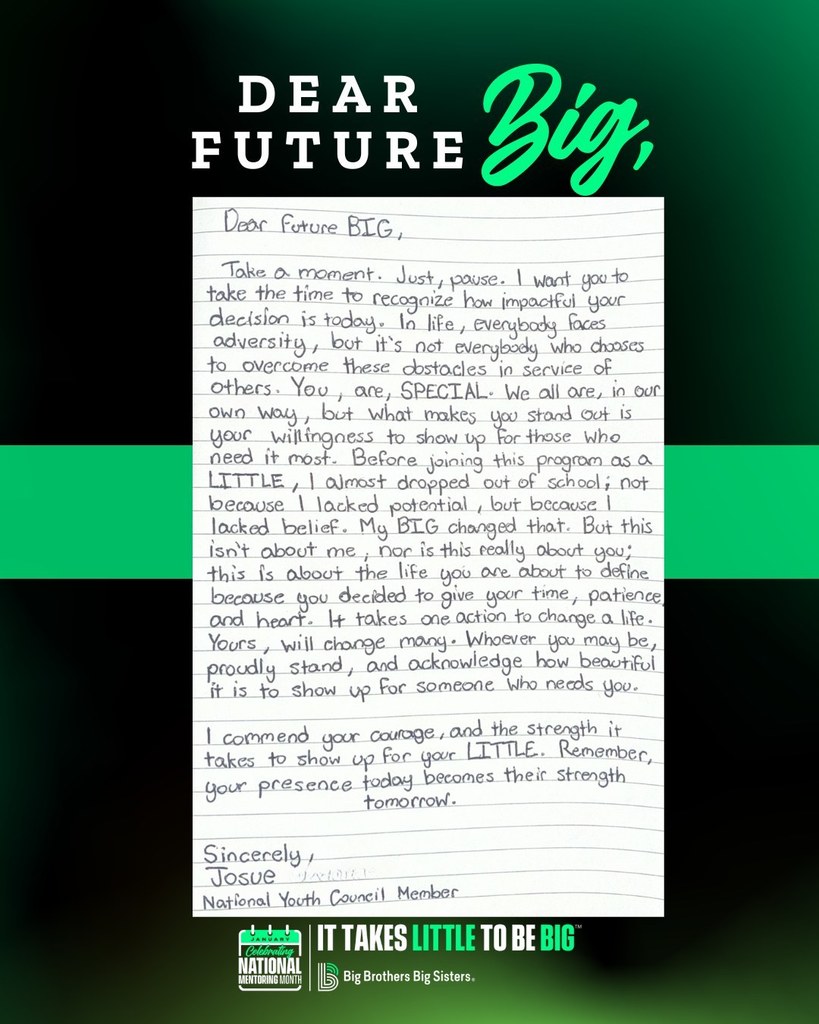 DEAR
FUTURE Big,
Dear Future BIG,
Take a moment. Just, pause. I want you to
take the time to recognize how impactful your
decision is today. In life, everybody faces
adversity, but it's not everybody who chooses
to overcome these obstacles in service of
others. You, are, SPECIAL. We all are, in our
own way, but what makes you stand out is
your willingness to show up for those who
need it most. Before joining this program as a
LITTLE, I almost dropped out of school; not
because I lacked potential, but because I
lacked belief. My BIG changed that. But this
isn't about me, nor is this really about you;
this is about the life you are about to define
because you decided to give your time, patience,
and heart. It takes one action to change a life.
Yours, will change many. Whoever you may be,
proudly stand, and acknowledge how beautiful
it is to show up for someone who needs you.
I commend your courage, and the strength it
takes to show up for your LITTLE. Remember,
your presence today becomes their strength
tomorrow.
Sincerely,
Josue
National Youth Council Member
JANUARY
Celebrating
NATIONAL
MENTORING MONTH
IT TAKES LITTLE TO BE BIG™
Big Brothers Big Sisters®